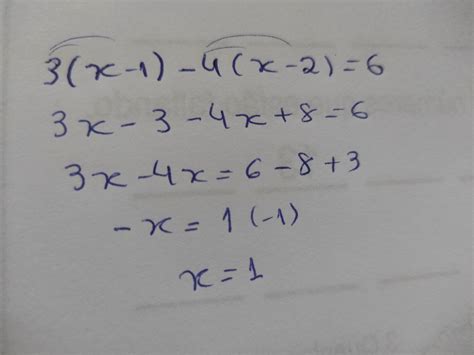 3(x-1)-4(x-2)=6
3x-3-4x+8=6
3x-4x=6-8+3
-x=1(-1)
x=1